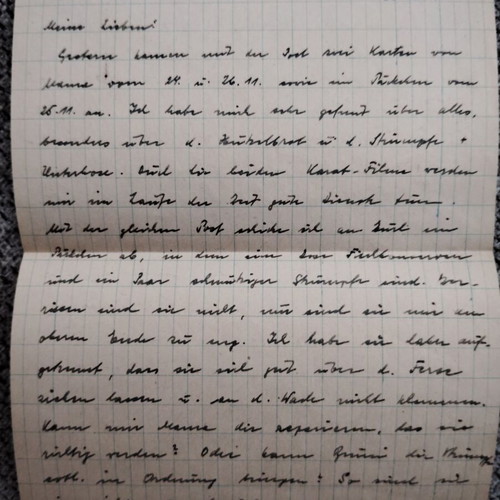 Meine Lieben!
Gestern kamen mit der Post zwei Karten von
Mama vom 24. u. 26.11. sowie ein Päckchen vom
25.11. an. Ich habe mich sehr gefreut über alles,
besonders über d. Hutzelbrot u. d. Strümpfe +
Unterhose. Auch die beiden Karat-Filme werden
mir im Laufe der Zeit gute Dienste tun.
Mit der gleichen Post schicke ich an Euch ein
Päckchen ab, in dem eine
und ein Paar schmutziger Strümpfe sind. Zer-
rissen sind sie nicht, nur sind sie mir am
oberen Ende zu eng. Ich habe sie daher auf-
getrennt, dass sie sich gut über d. Ferse
ziehen lassen u. an d. Wade nicht klemmen.
Kann mir Mama die reparieren, das sie
richtig werden? Oder kann die Strümpfe
evtl. in Ordnung bringen? So sind sie